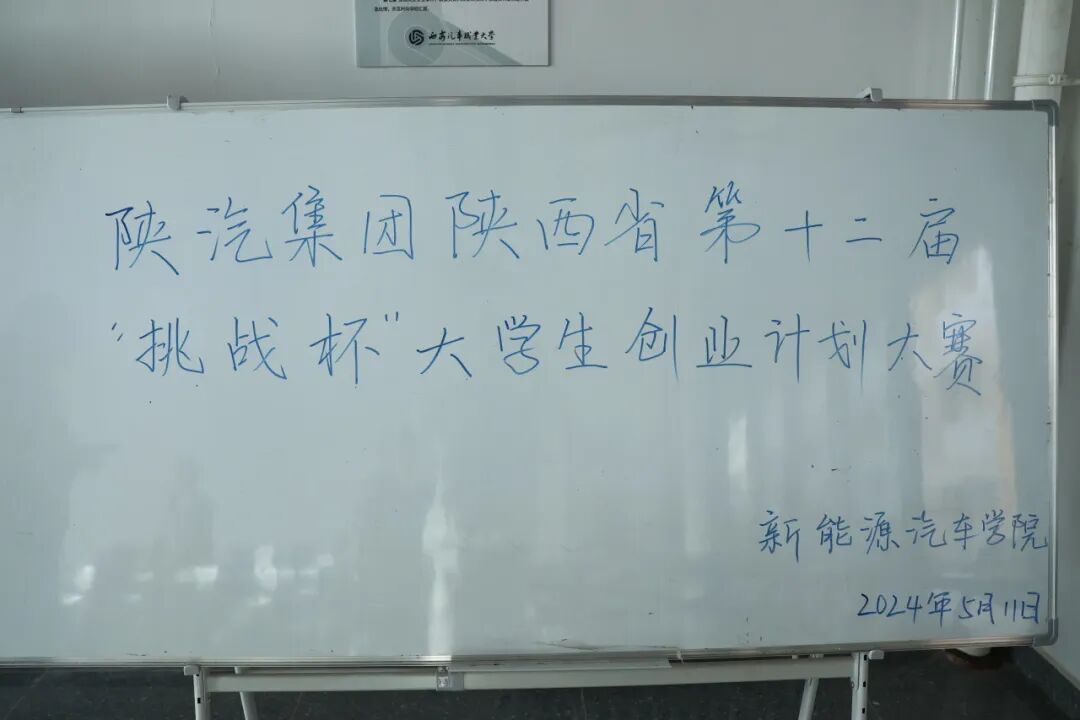 西安汽车职业大学
陕汽集团陕西省第十二届
“挑战杯”大学生创业计划大赛
新能源汽车学院
2024年5月11日